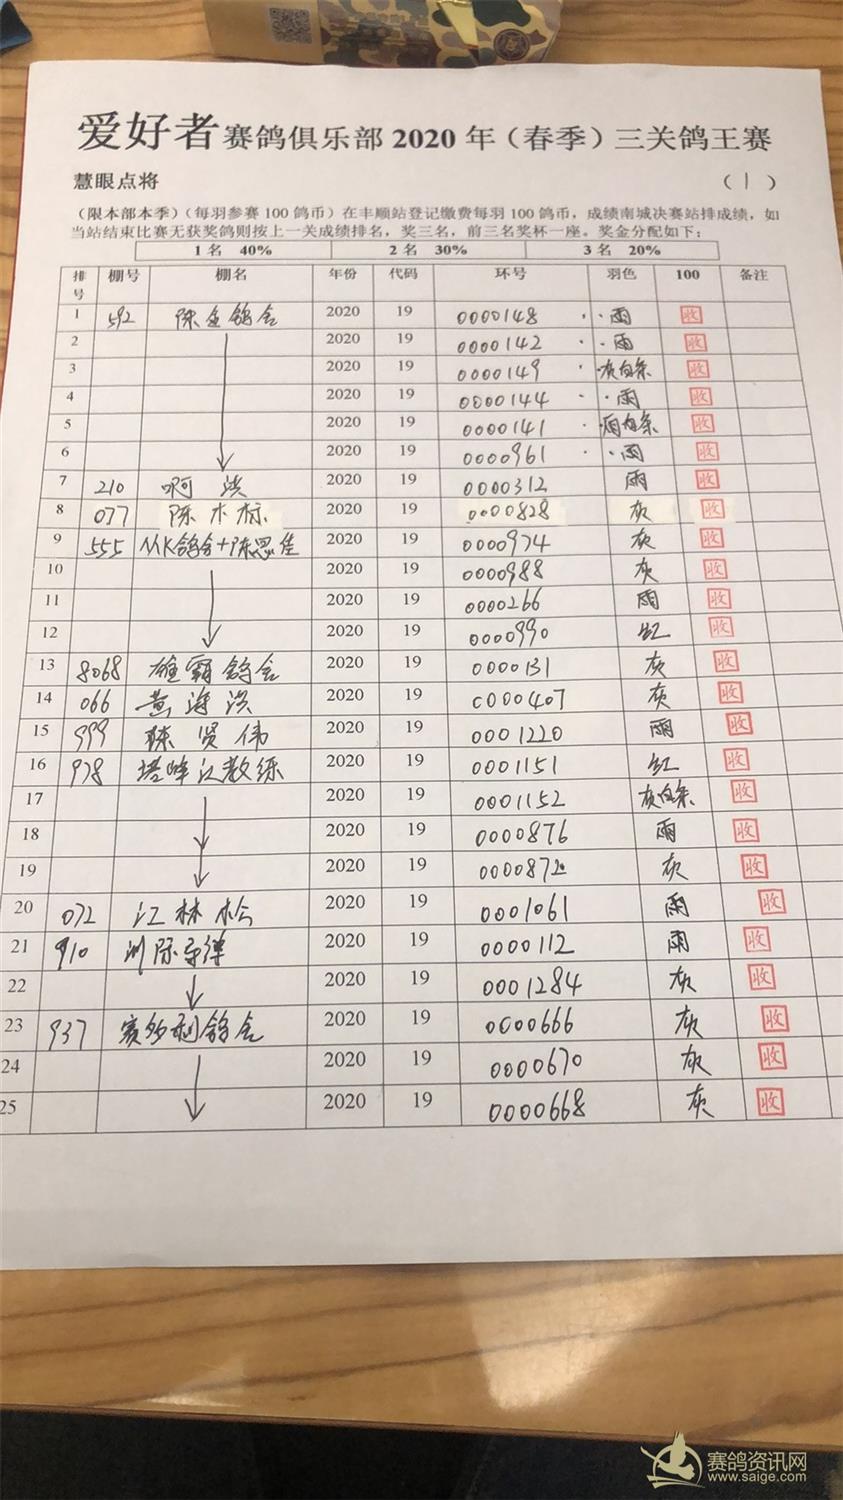 爱好者赛鸽俱乐部2020年(春季)三关鸽王赛
慧眼点将 (1)
(限本部本季)(每羽参赛100鸽币)在丰顺站登记缴费每羽100鸽币,成绩南城决赛站排成绩,如
当站结束比赛无获奖鸽则按上一关成绩排名,奖三名,前三名奖杯一座。奖金分配如下:
1名 40% 2名 30% 3名 20%
排号 棚号 棚名 年份 代码 环号 羽色 100 备注
1 592 陈金鸽舍 2020 19 0000148 雨 收
2 2020 19 0000142 雨 收
3 2020 19 0000149 灰白条 收
4 2020 19 0000144 雨 收
5 2020 19 0000141 雨白条 收
6 2020 19 0000961 雨 收
7 210 啊洪 2020 19 0000312 雨 收
8 077 陈木标 2020 19 0000828 灰 收
9 555 MK鸽舍+陈思佳 2020 19 0000974 灰 收
10 2020 19 0000988 灰 收
11 2020 19 0000266 雨 收
12 2020 19 0000990 红 收
13 8068 雄霸鸽舍 2020 19 0000131 灰 收
14 066 黄海洪 2020 19 0000407 灰 收
15 999 陈贤伟 2020 19 0001220 雨 收
16 978 塔峰江教练 2020 19 0001151 红 收
17 2020 19 0001152 灰白条 收
18 2020 19 0000876 雨 收
19 2020 19 0000872 灰 收
20 072 江林松 2020 19 0001061 雨 收
21 910 洲际导弹 2020 19 0000112 雨 收
22 2020 19 0001284 灰 收
23 937 赛多利鸽舍 2020 19 0000666 灰 收
24 2020 19 0000670 灰 收
25 2020 19 0000668 灰 收
赛鸽资讯网
www.saige.com